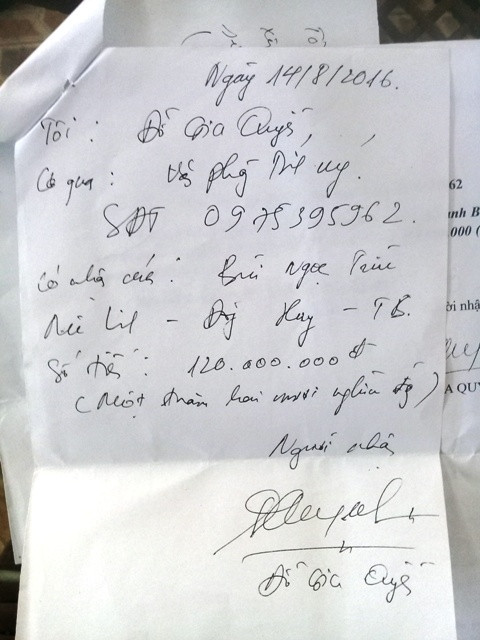 Ngày 14/8/2016.
Tôi: Đỗ Gia Quyết,
Cơ quan: Vă phòng
SĐT 0975395962.
Có nhận của: Bùi Ngọc
- Hưng - TB.
Số tiền: 120.000.000đ
(Một trăm hai mươi nghìn đồng)
Người nhận
Đỗ Gia Quyết
62
anh B
.000 (
ời nhậ
A QUY